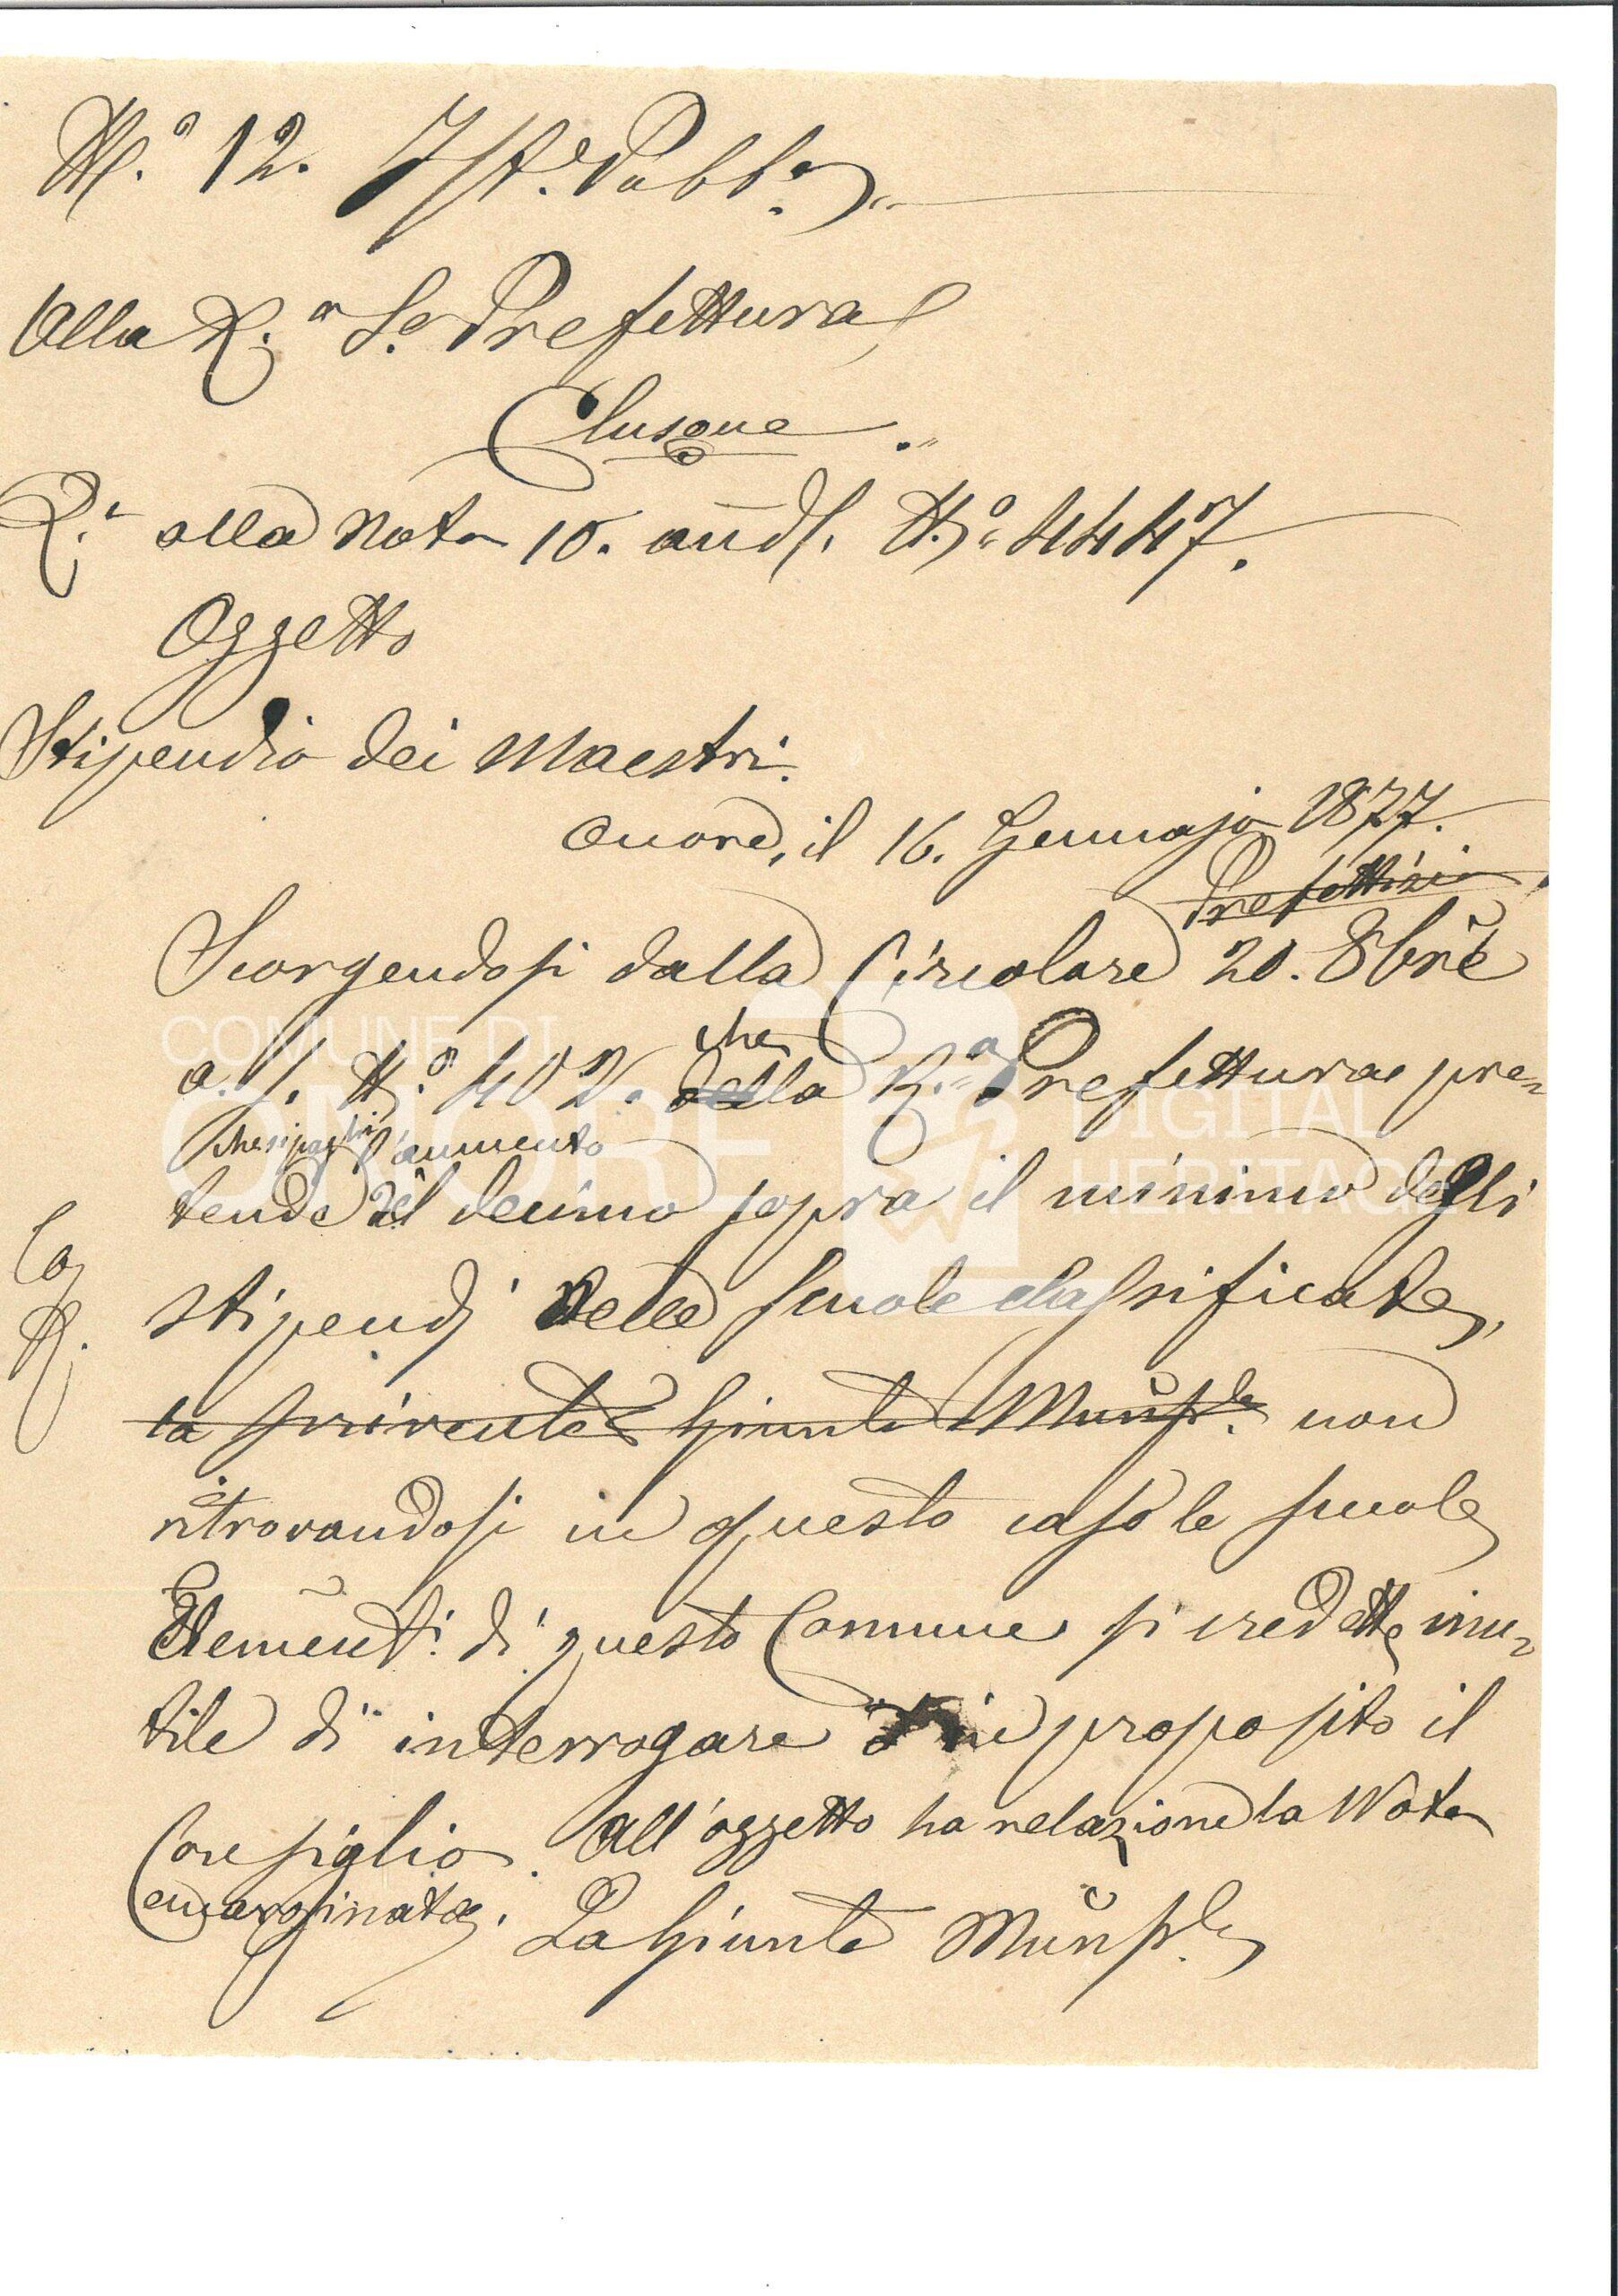 N.° 12. Ist.e Pubb.a
Alla R.a S.o Prefettura
Clusone
R.e alla Nota 10. and. N.° 4447.
Oggetto
Stipendio dei Maestri.
Onore, il 16. Gennajo 1877.
Prefettizia
Scorgendosi dalla Circolare 20. 8bre
che
a. s. N.° 402. della R.a Prefettura pre=
che si paghi l'aumento
tende del decimo sopra il minimo degli
stipendj delle scuole classificate,
la scrivente Giunta Munple non
ritrovandosi in questo caso le scuole
Element.i di questo Comune si credette inu=
tile di interrogare in proposito il
Consiglio. All'oggetto ha relazione la Nota
emarginata.
La Giunta Munple
COMUNE DI
ONORE
DIGITAL
HERITAGE